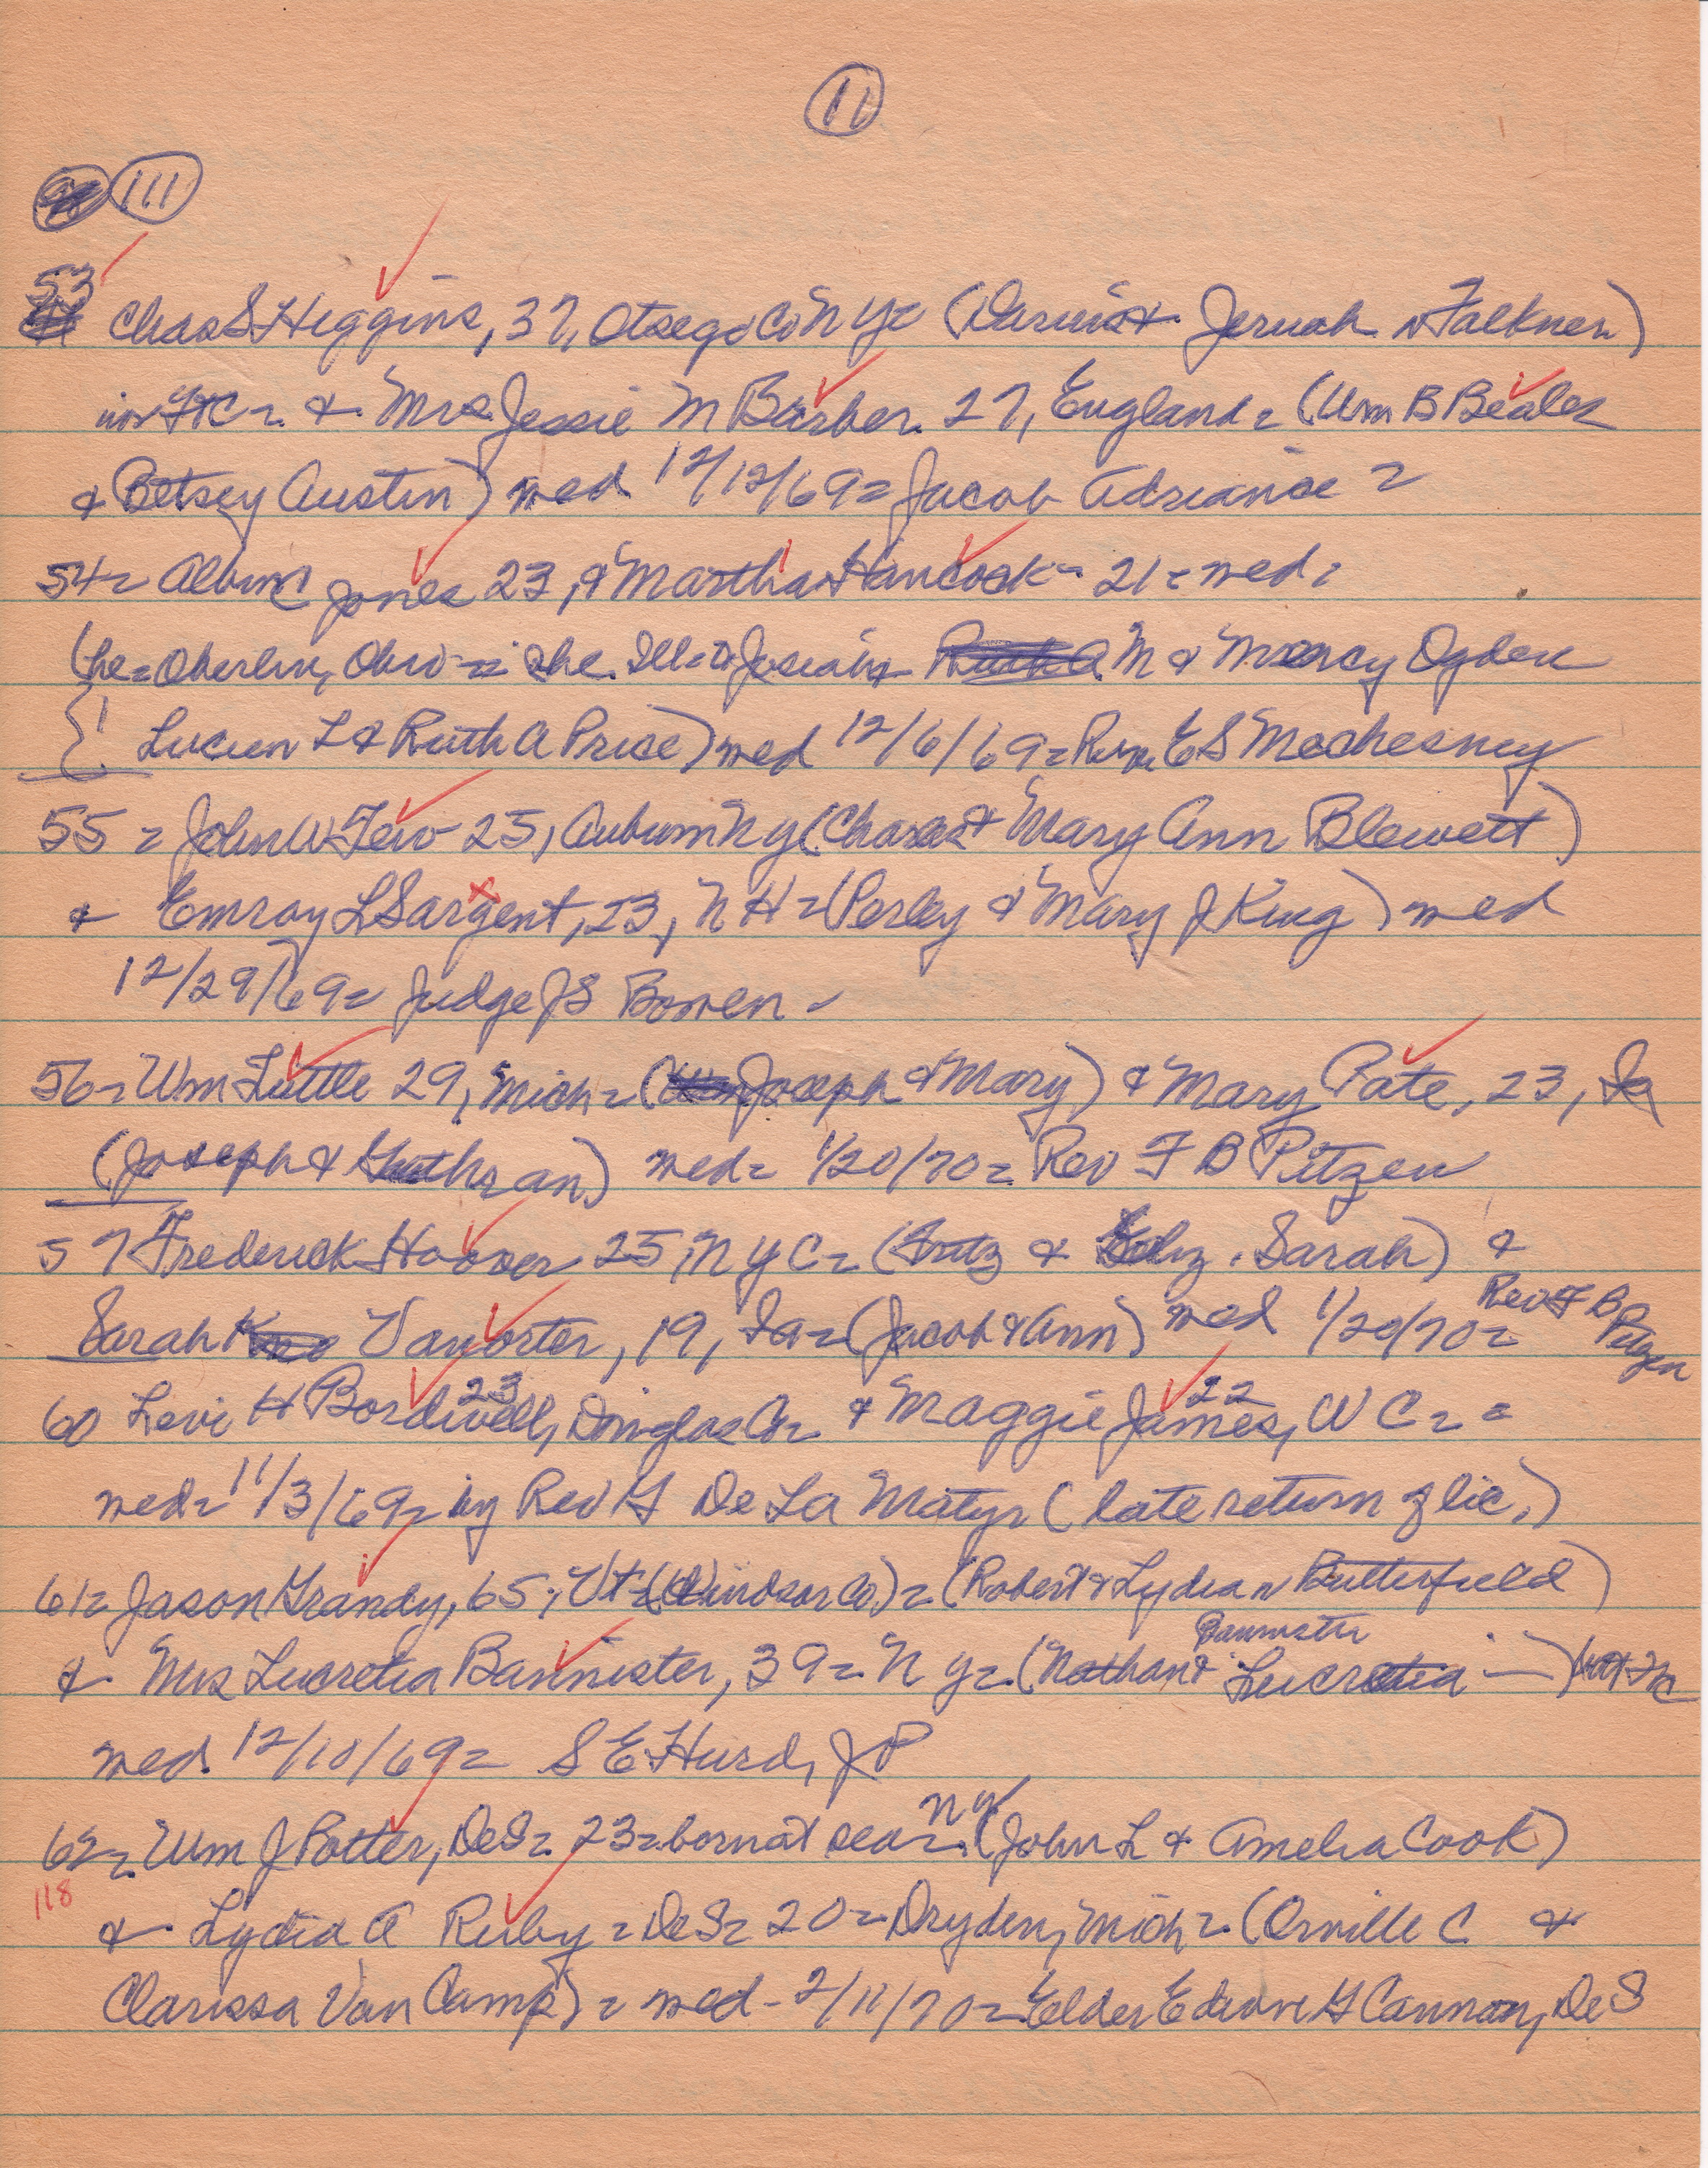 11
111
53 Chas S Higgins, 37, Otsego Co N Y = (Darius & Jeruah n Falkner)
& Mrs. Jessie M Barber. 27, England = (Wm B Beales
& Betsey Austin) med 12/12/69 = Jacob Adriance =
54 = Albin C Jones 23, & Martha Hancock - 21 = med =
(he = Oberlin, Ohio = she. Ill = Josiah M & Mercy Ogden
Lucien L & Ruth A Price) med 12/6/69 = E S Mcchesney
55 = John W Tew - 25, Auburn N Y (Charles & Mary Ann Blewett)
& Emroy L Sargent, 23, N H = (Perley & Mary J King) med
12/29/69 = Judge J S Bowen -
56 = Wm Luttle 29, Mich = (Joseph & Mary) & Mary Pate, 23, Ia
(Joseph & ) med = 1/20/70 = Rev F B Pitzer
57 Frederick Hoover 25, N Y C = (Fritz & Sarah) &
Sarah Vanorter, 19, Ia = (Jacob & Ann) med 1/20/70 = Rev F B Pitzer
60 Levi H Bordwell, 23 Douglas Co = & Maggie James, 22 W C = =
med = 11/3/69 = by Rev G De La Matyr (late return of lic.)
61 = Jason Grandy, 65, Vt = (Windsor Co.) = (Robert & Lydia n Butterfield)
& Mrs Lucretia Bannister, 39 = N Y = (Nathan & Lucretia Bannister —)
med 12/10/69 = S E Hurd, J P
62 = Wm J Potter, DeS = 23 = born at sea = N Y (John L & Amelia Cook)
118
& Lydia A Ruby = DeS = 20 = Dryden, Mich = (Orville C &
Clarissa Van Camp) = med - 2/11/70 = Elder Edwin G Cannon, DeS